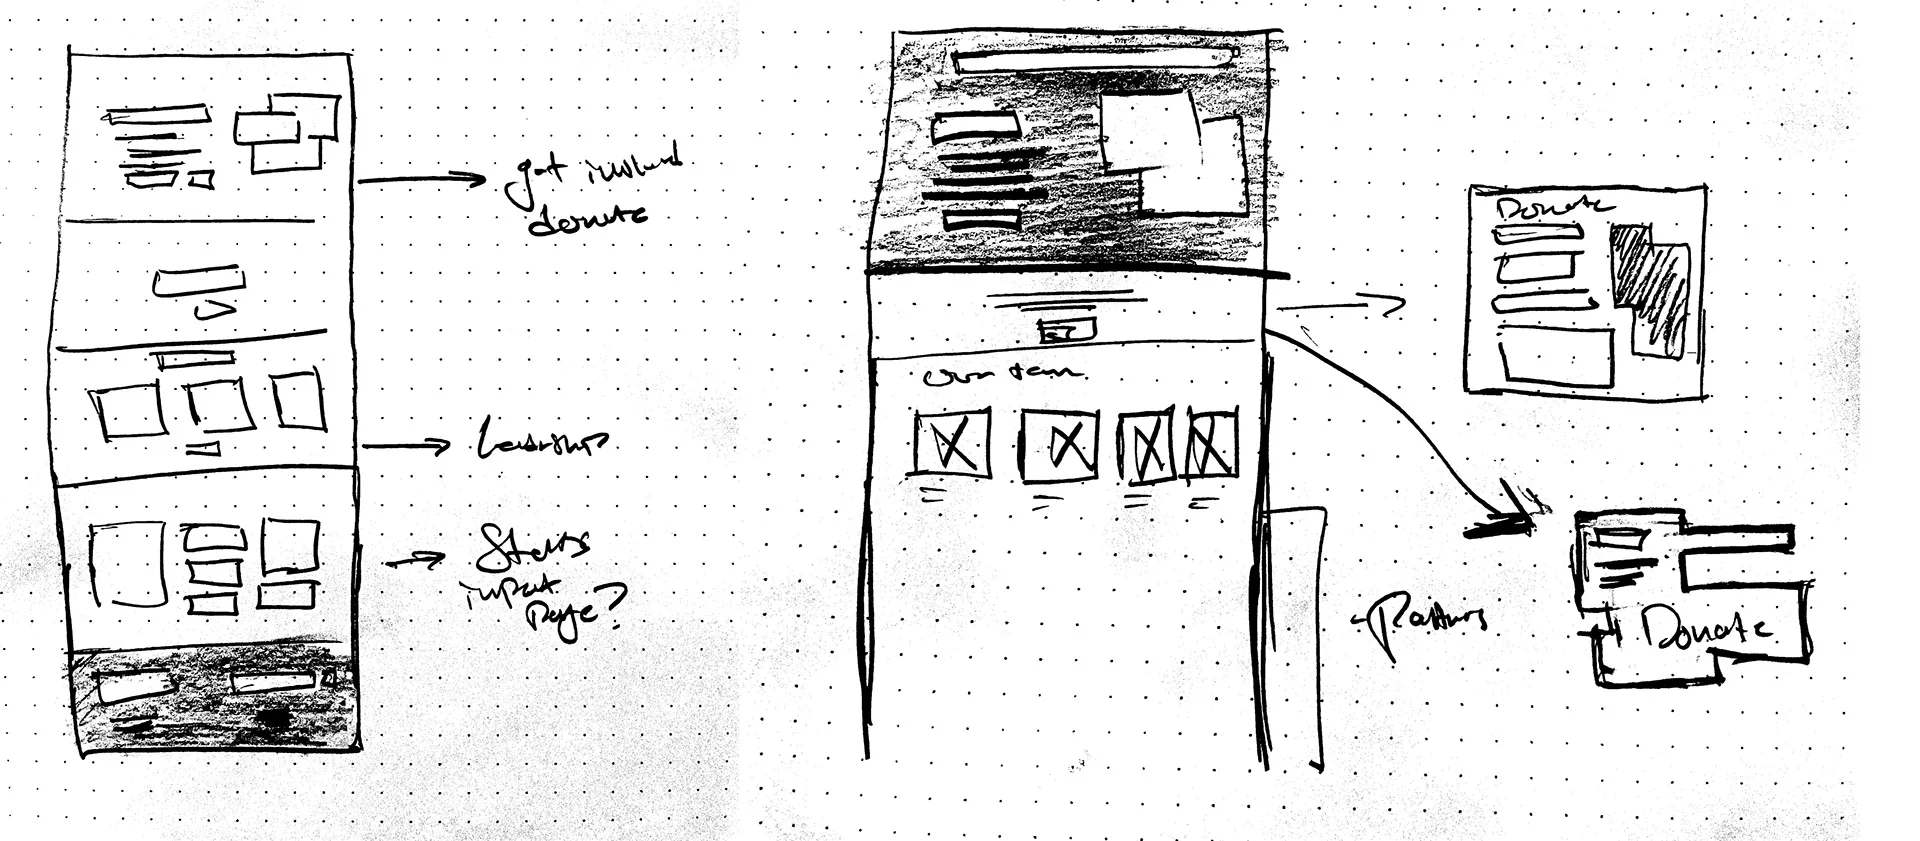 get involved
donate
Stats
impact
page?
our team
Donate
Partners
Donate